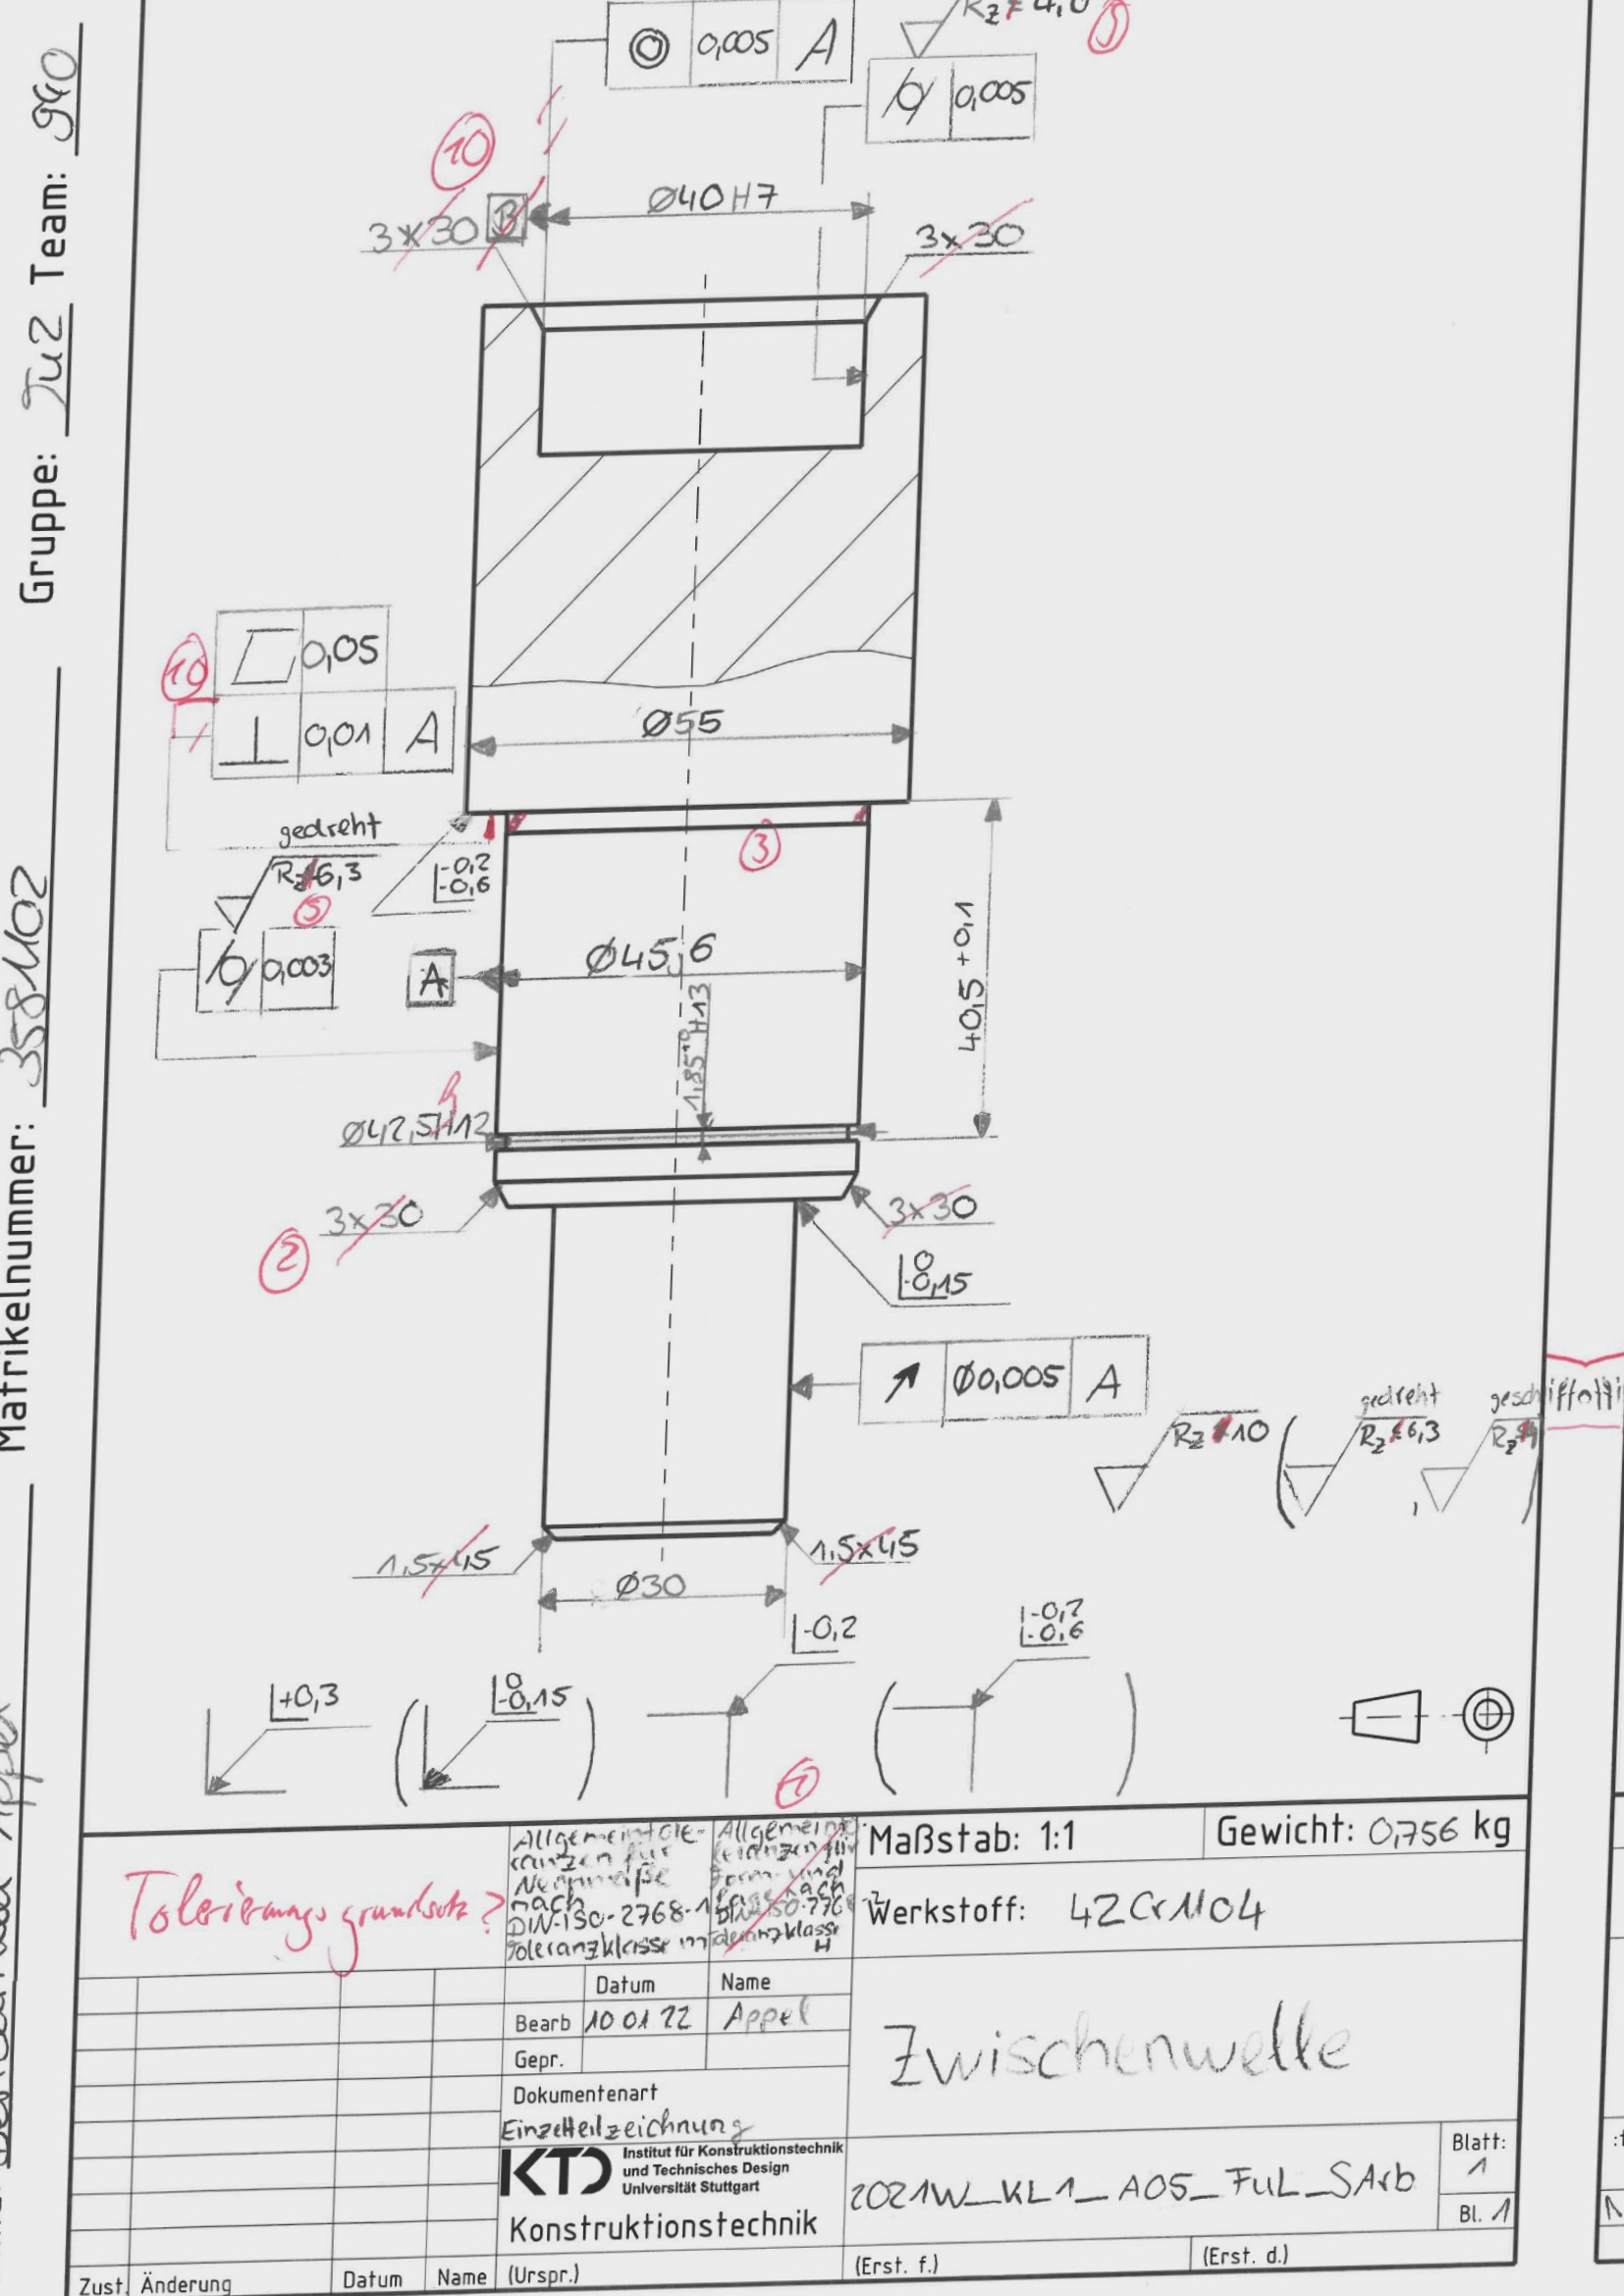 Gruppe: Ju2 Team: 940
Matrikelnummer: 3581402
0,005 A
Rz 4,0
5
0,005
10
3x30 B
Ø40H7
3x30
10
0,05
0,01 A
Ø55
gedreht
Rz 6,3
5
-0,2
-0,6
3
0,003
A
Ø45j6
40,5 +0,1
1,85 +0 H13
h
Ø42,5H12
3x30
2
3x30
0
-0,15
Ø0,005 A
Rz 10
gedreht
Rz 6,3
1,5x45
1,5x45
Ø30
+0,3
0
-0,15
-0,2
-0,2
-0,6
Tolerierungsgrundsatz?
Allgemeintole-
ranzen für
Nennmaße
nach
DIN-ISO-2768-1
Toleranzklasse m
Allgemeinto
leranzen für
Form- und
Lage nach
DIN-ISO-2768
Toleranzklasse
H
Maßstab: 1:1
Gewicht: 0,756 kg
Werkstoff: 42CrMo4
Datum Name
Bearb 10 01 22 Appel
Gepr.
Dokumentenart
Einzelteilzeichnung
Zwischenwelle
KTD Institut für Konstruktionstechnik
und Technisches Design
Universität Stuttgart
Konstruktionstechnik
2021W_KL1_A05_FuL_SArb
Blatt:
1
Bl. 1
Zust. Änderung Datum Name (Urspr.) (Erst. f.) (Erst. d.)